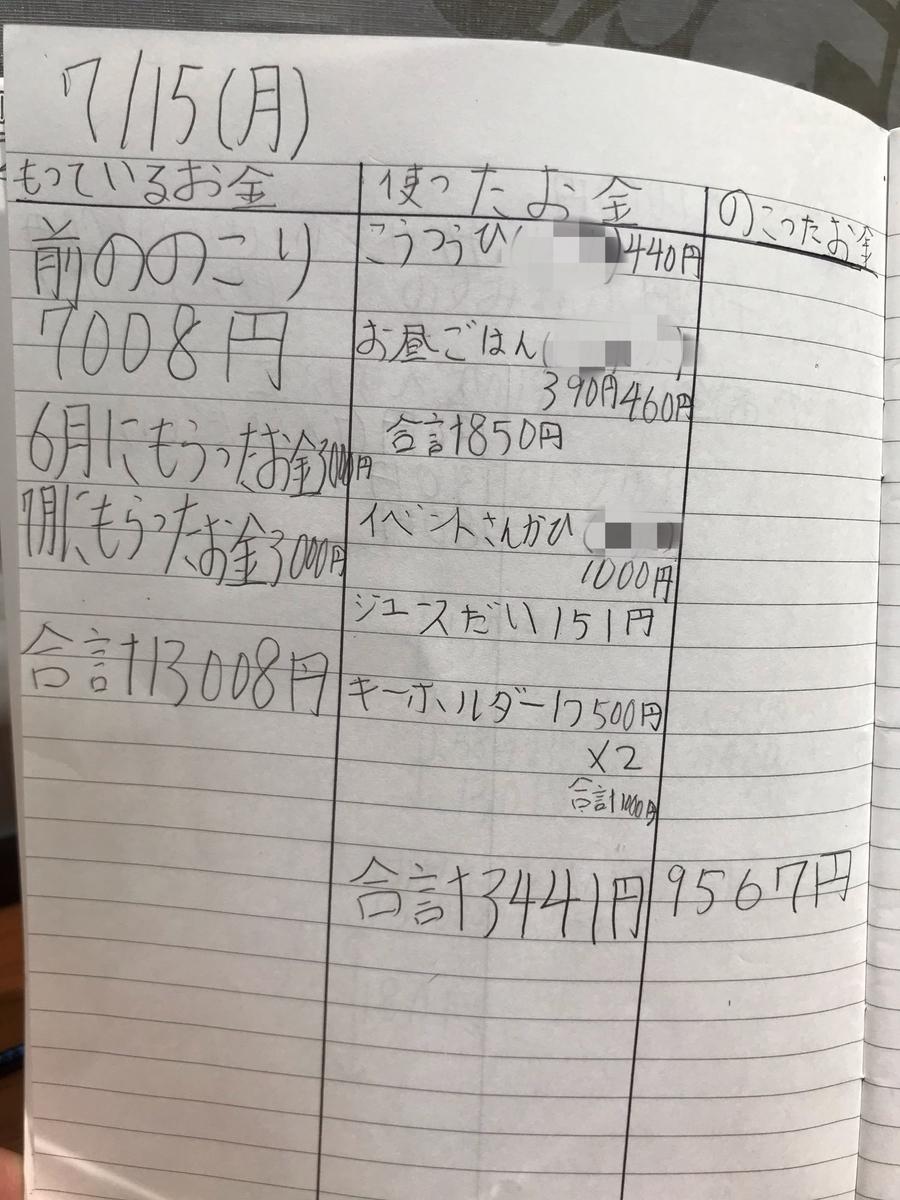 7/15(月)
もっているお金
前ののこり
7008円
6月にもらったお金3000円
7月にもらったお金3000円
合計13008円
使ったお金
こうつうひ( )440円
お昼ごはん( )
390円460円
合計850円
イベントさんかひ( )
1000円
ジュースだい151円
キーホルダー1つ500円
×2
合計1000円
合計3441円
のこったお金
9567円